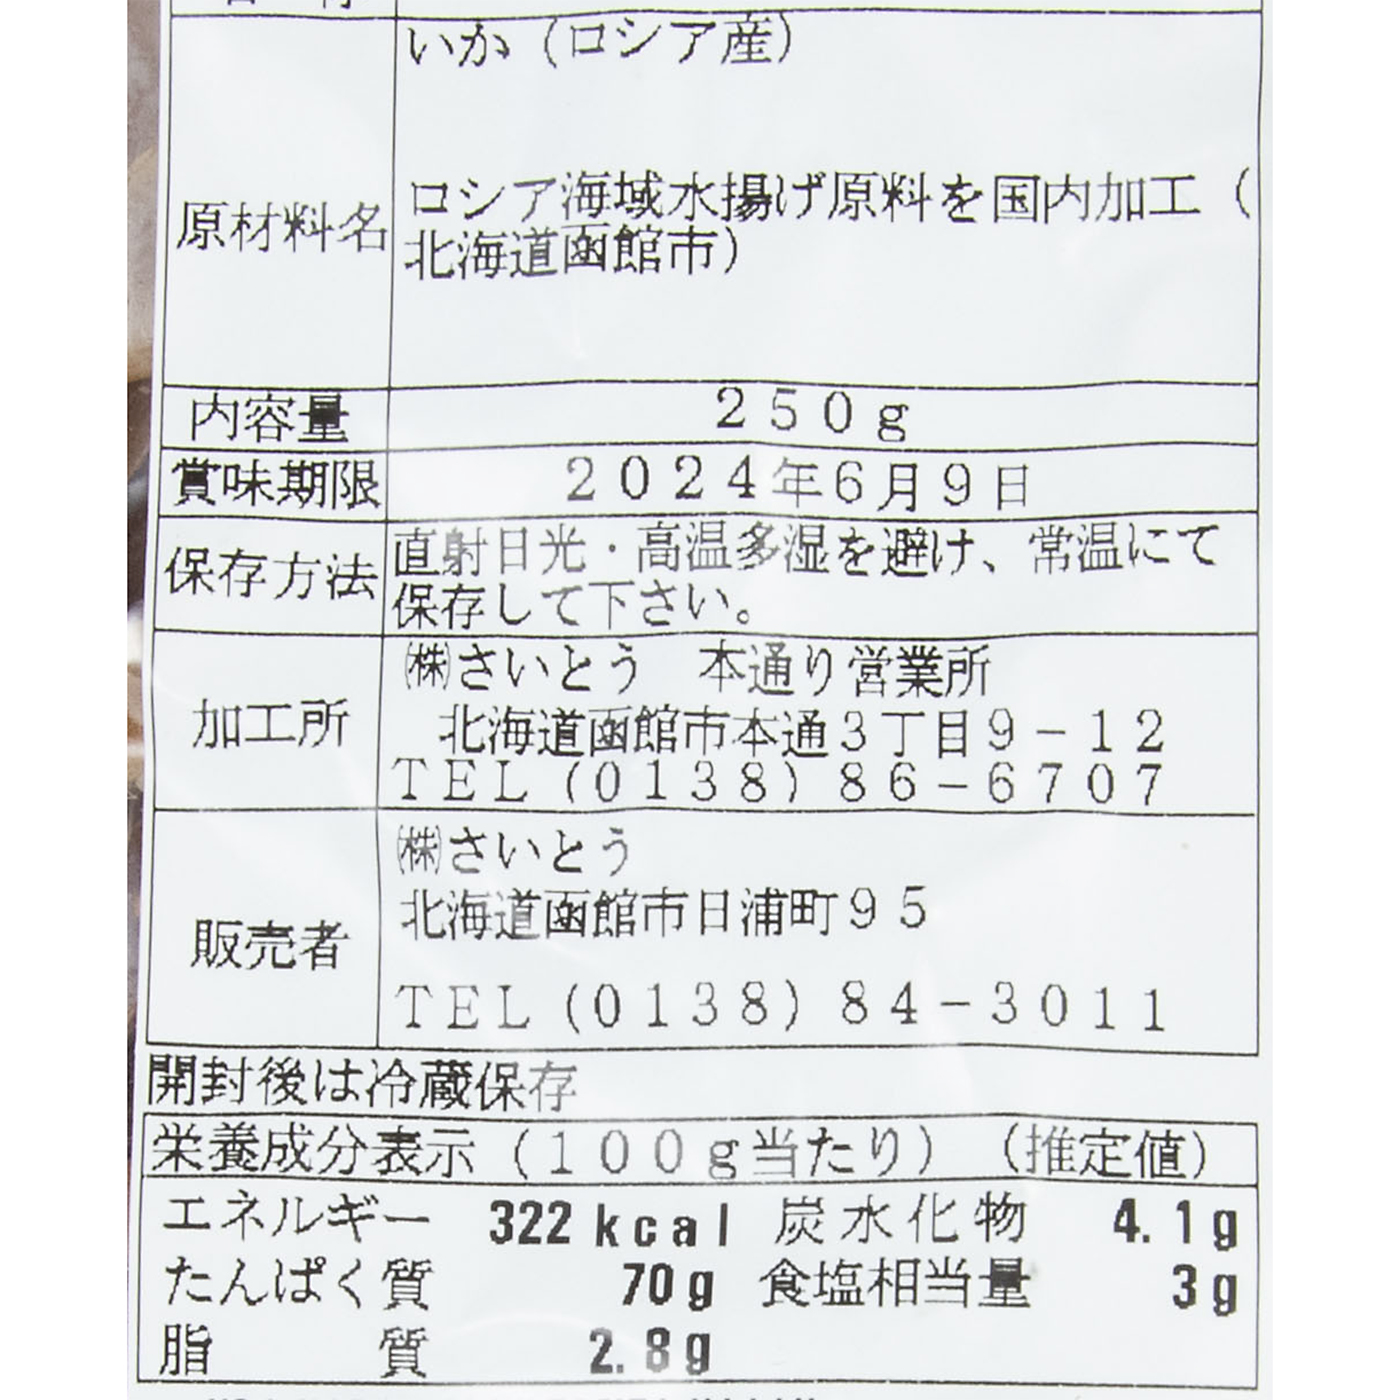 いか（ロシア産）
原材料名
ロシア海域水揚げ原料を国内加工（
北海道函館市）
内容量 ２５０ｇ
賞味期限 ２０２４年６月９日
保存方法
直射日光・高温多湿を避け、常温にて
保存して下さい。
加工所
㈱さいとう　本通り営業所
北海道函館市本通３丁目９－１２
ＴＥＬ（０１３８）８６－６７０７
販売者
㈱さいとう
北海道函館市日浦町９５
ＴＥＬ（０１３８）８４－３０１１
開封後は冷蔵保存
栄養成分表示（１００ｇ当たり）（推定値）
エネルギー 322 kcal 炭水化物 4.1g
たんぱく質 70g 食塩相当量 3g
脂質 2.8g